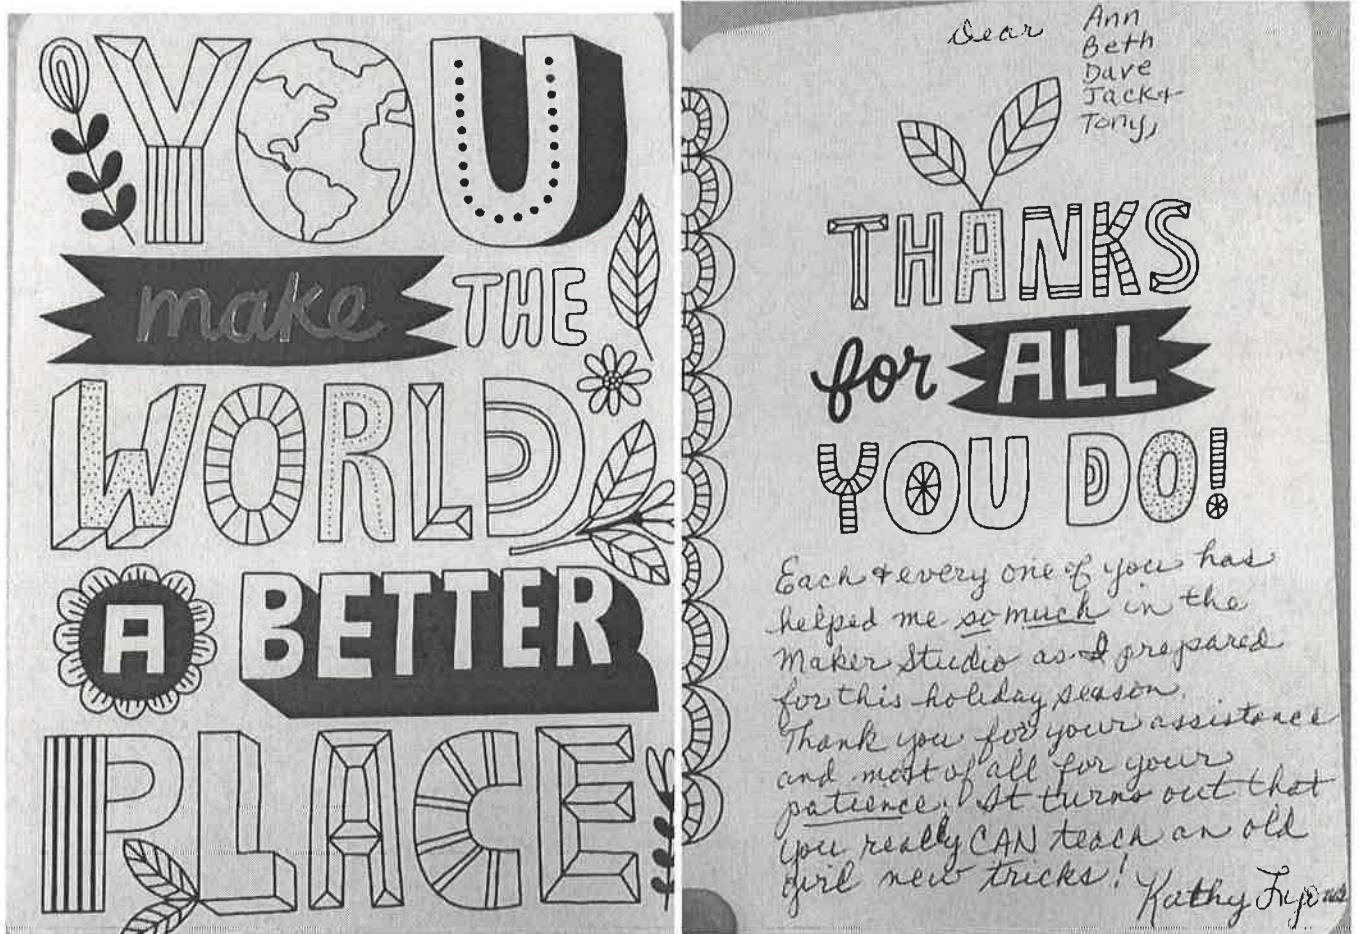 YOU
make THE
WORLD
A BETTER
PLACE
Dear Ann
Beth
Dave
Jack +
Tony,
THANKS
for ALL
YOU DO!
Each & every one of you has
helped me so much in the
Maker Studio as I prepared
for this holiday season.
Thank you for your assistance
and most of all for your
patience! It turns out that
you really CAN teach an old
girl new tricks!
Kathy